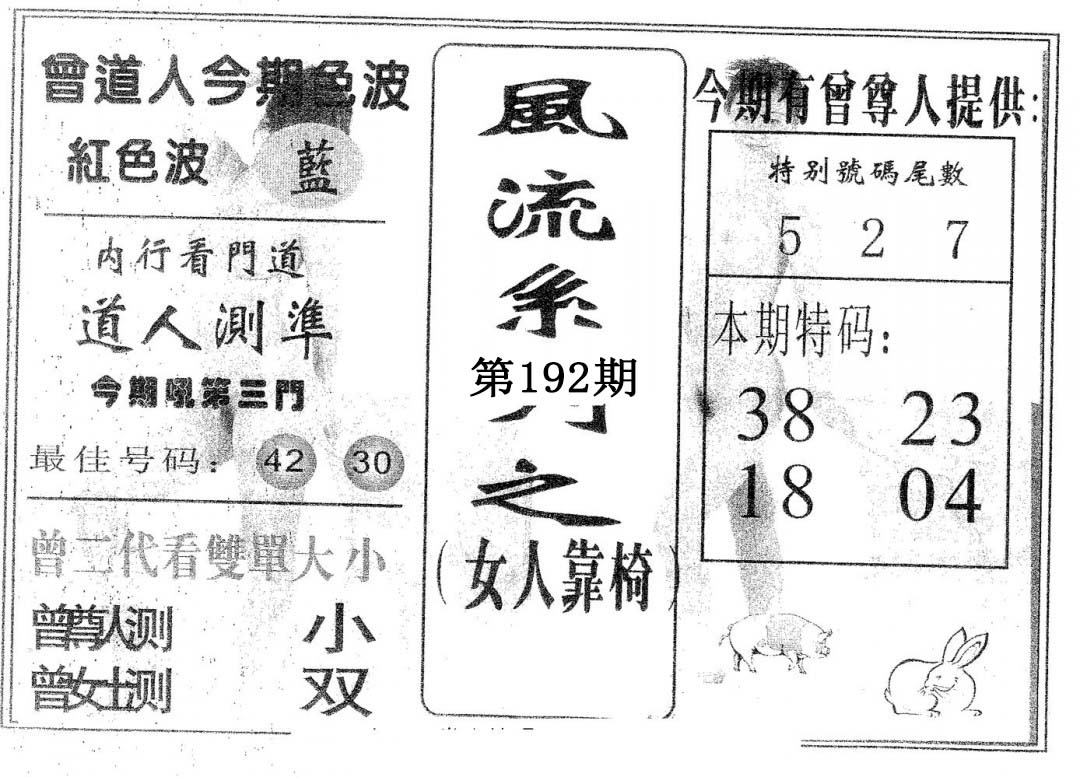 曾道人今期色波
紅色波
藍
内行看門道
道人測準
今期吼第三門
最佳号码：
42
30
曾二代看雙單大小
曾尊人测 小
曾女士测 双
風流系列之
第192期
（女人靠椅）
今期有曾尊人提供：
特别號碼尾數
5 2 7
本期特码：
38 23
18 04